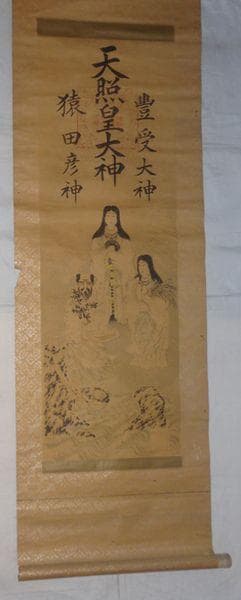 豊受大神
天照皇大神
猿田彦神